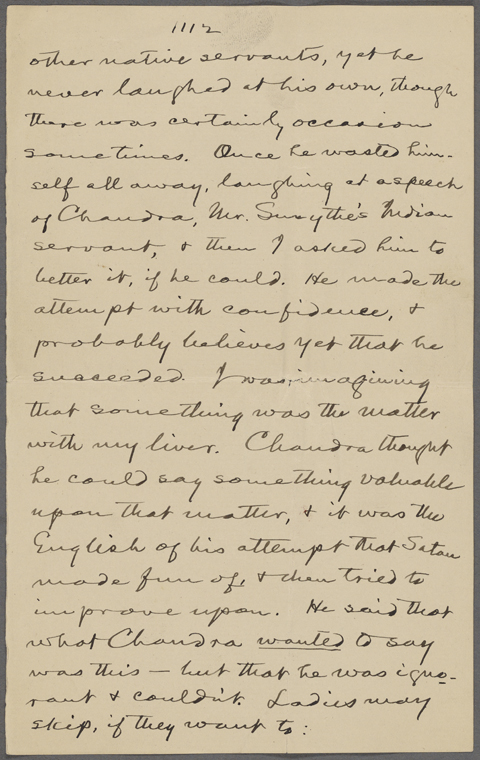 1112
other native servants, yet he
never laughed at his own, though
there was certainly occasion
sometimes. Once he wasted him-
self all away, laughing at a speech
of Chandra, Mr. Smythe's Indian
servant, & then I asked him to
better it, if he could. He made the
attempt with confidence, &
probably believes yet that he
succeeded. I was imagining
that something was the matter
with my liver. Chandra thought
he could say something valuable
upon that matter, & it was the
English of his attempt that Satan
made fun of, & then tried to
improve upon. He said that
what Chandra wanted to say
was this — but that he was igno-
rant & couldn't. Ladies may
skip, if they want to: